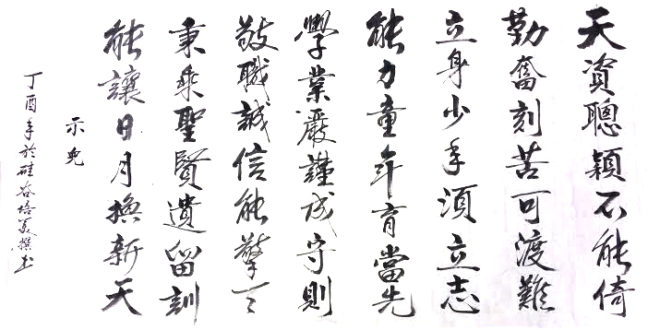 天資聰穎不能倚
勤奮刻苦可渡難
立身少年須立志
能力童年育當先
學業嚴謹成守則
敬職誠信能擎天
秉乘聖賢遺留訓
能讓日月換新天
示兒
丁酉年於硅谷培善撰书